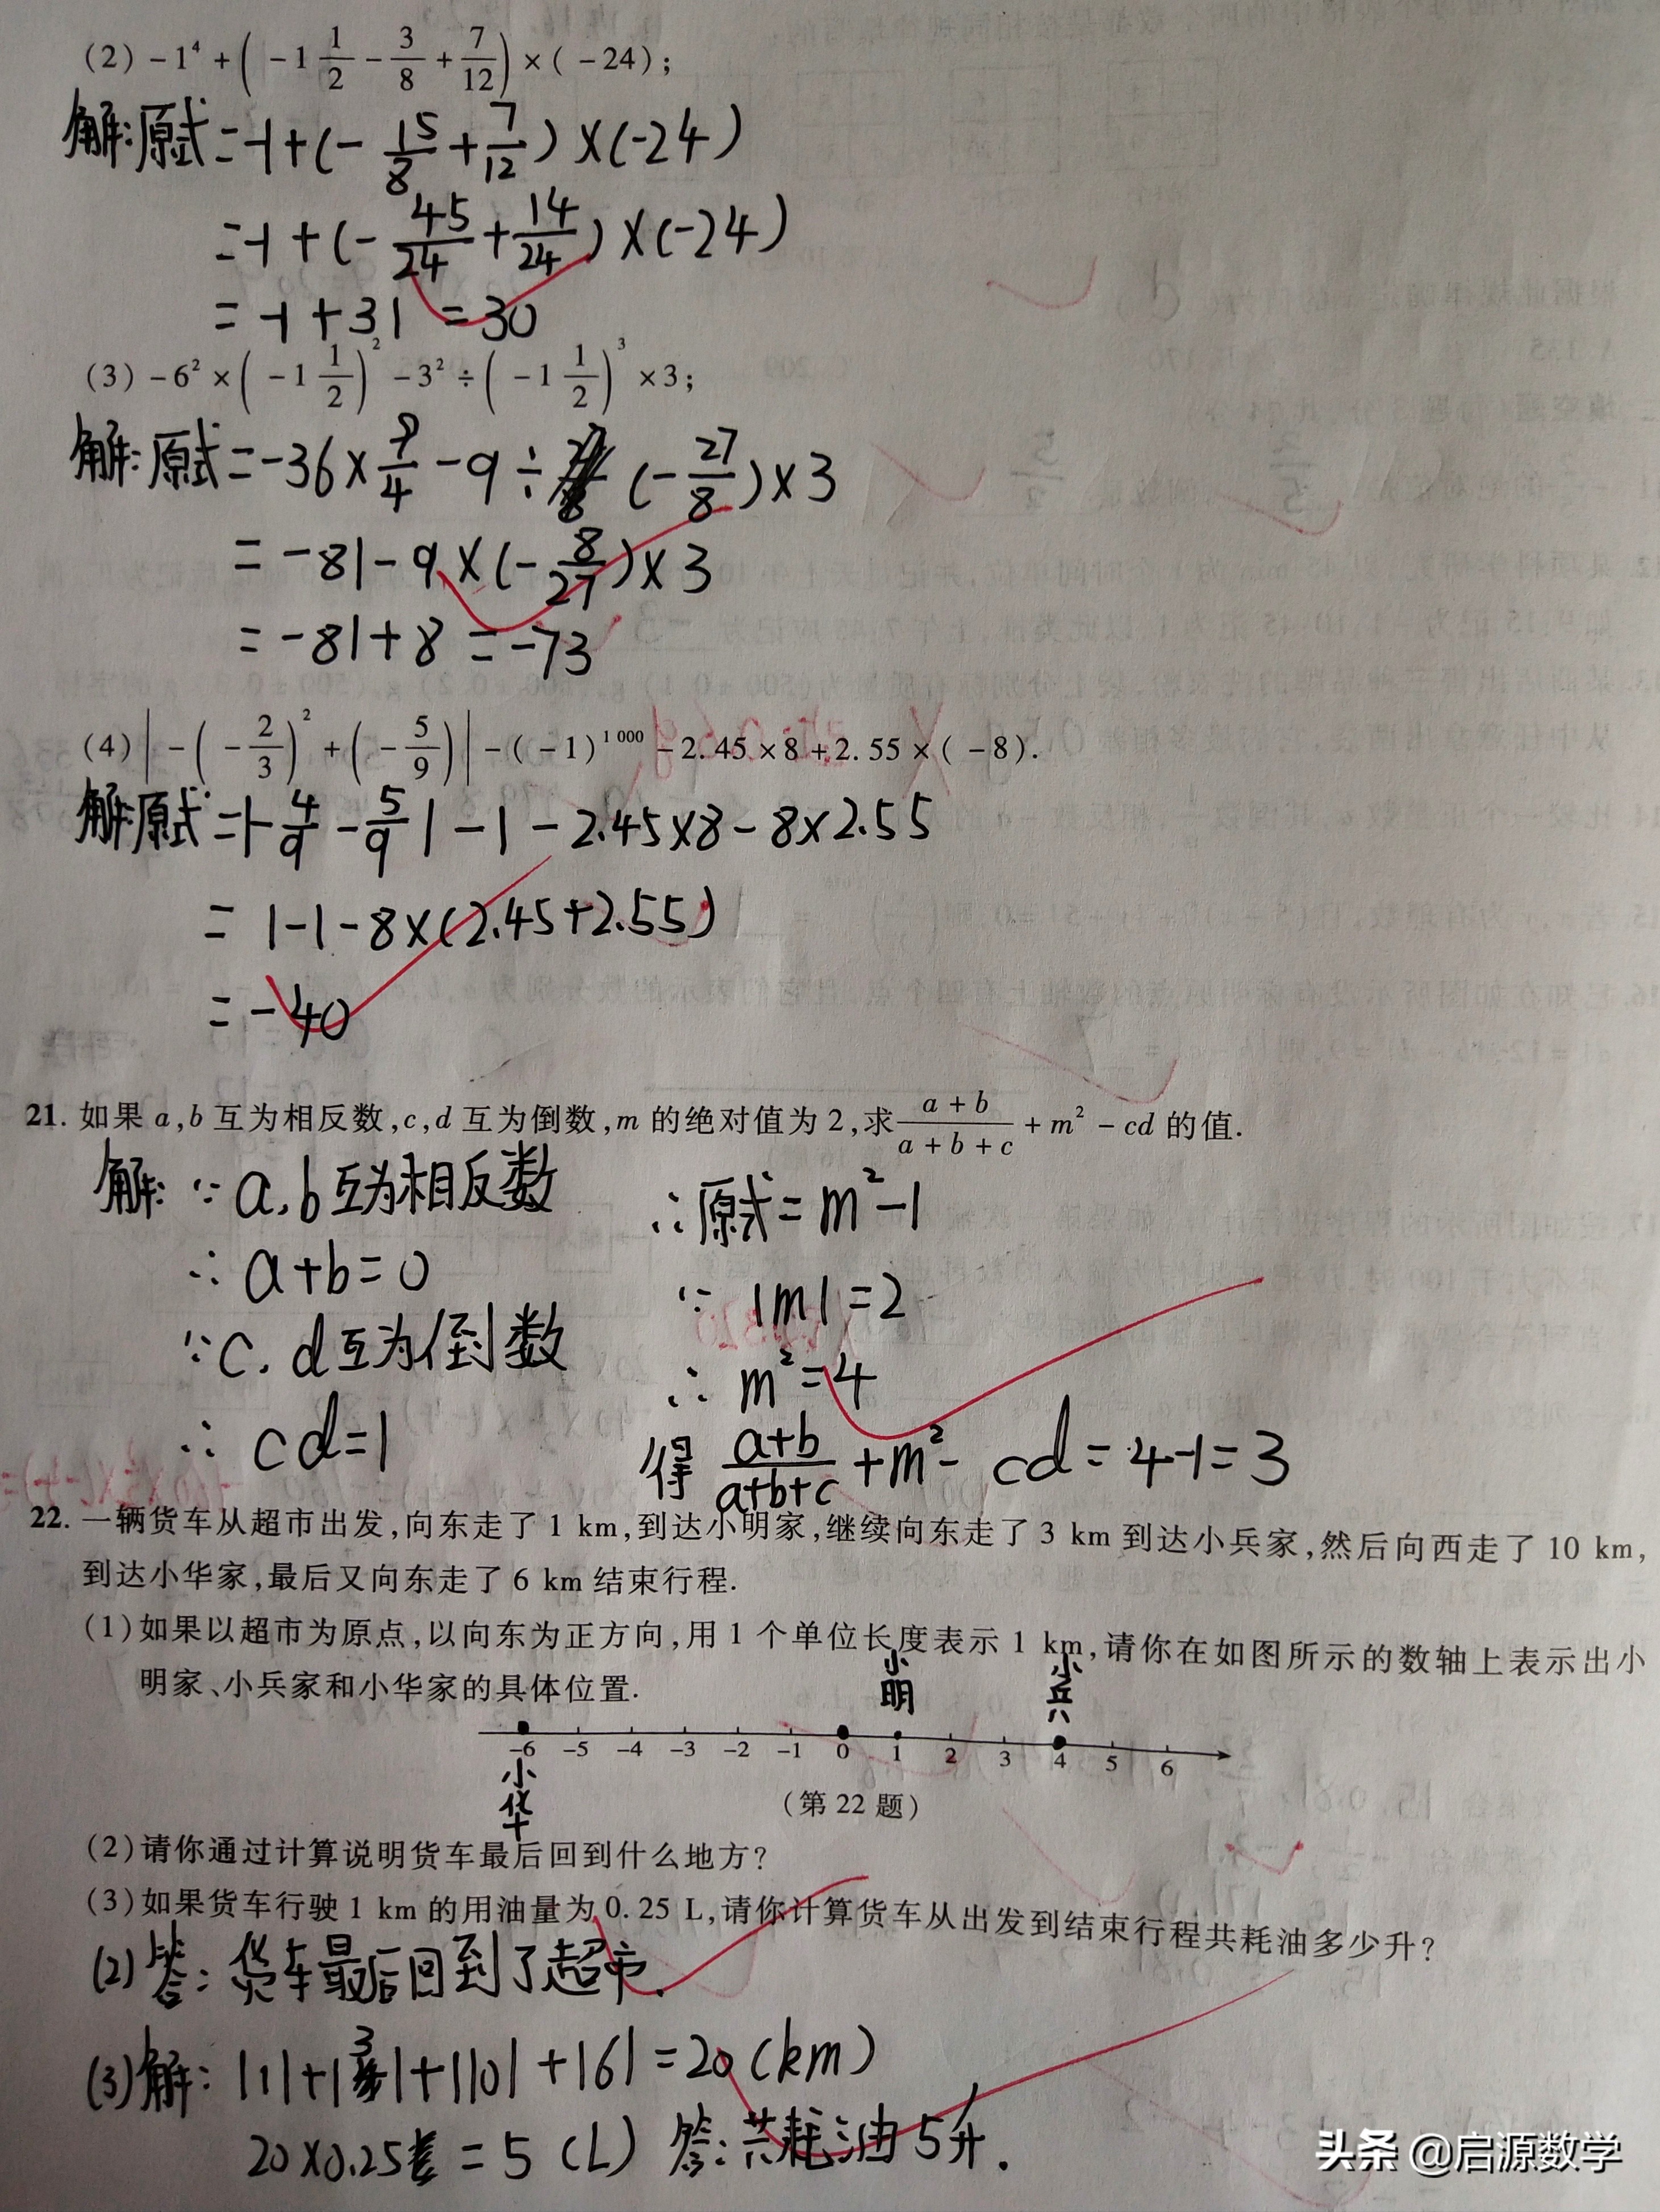 (2) -1⁴ + ( -1 1/2 - 3/8 + 7/12 ) × ( -24 ) ;
解:原式 = -1 + (- 15/8 + 7/12 ) × (-24)
= -1 + (- 45/24 + 14/24 ) × (-24)
= -1 + 31 = 30
(3) -6² × ( -1 1/2 )² - 3² ÷ ( -1 1/2 )³ × 3 ;
解:原式 = -36 × 9/4 - 9 ÷ (- 27/8 ) × 3
= -81 - 9 × (- 8/27 ) × 3
= -81 + 8 = -73
(4) | - ( - 2/3 )² + ( - 5/9 ) | - ( -1 )^1 000 - 2.45 × 8 + 2.55 × ( -8 ).
解:原式 = |- 4/9 - 5/9 | - 1 - 2.45×8 - 8×2.55
= 1-1-8×(2.45+2.55)
= -40
21. 如果 a,b 互为相反数,c,d 互为倒数,m 的绝对值为 2,求 (a+b)/(a+b+c) + m² - cd 的值.
解: ∵ a,b互为相反数
∴ a+b=0
∵ c,d互为倒数
∴ cd=1
∴原式 = m²-1
∵ |m|=2
∴ m²=4
得 (a+b)/(a+b+c) + m² - cd = 4-1=3
22. 一辆货车从超市出发,向东走了 1 km,到达小明家,继续向东走了 3 km 到达小兵家,然后向西走了 10 km,
到达小华家,最后又向东走了 6 km 结束行程.
(1)如果以超市为原点,以向东为正方向,用 1 个单位长度表示 1 km,请你在如图所示的数轴上表示出小
明家、小兵家和小华家的具体位置.
小明 小兵
-6 -5 -4 -3 -2 -1 0 1 2 3 4 5 6
小华
(第 22 题)
(2)请你通过计算说明货车最后回到什么地方?
(3)如果货车行驶 1 km 的用油量为 0.25 L,请你计算货车从出发到结束行程共耗油多少升?
(2)答: 货车最后回到了超市.
(3)解: |1|+|3|+|10|+|6|=20(km)
20×0.25 = 5 (L) 答:共耗油5升.
头条 @启源数学